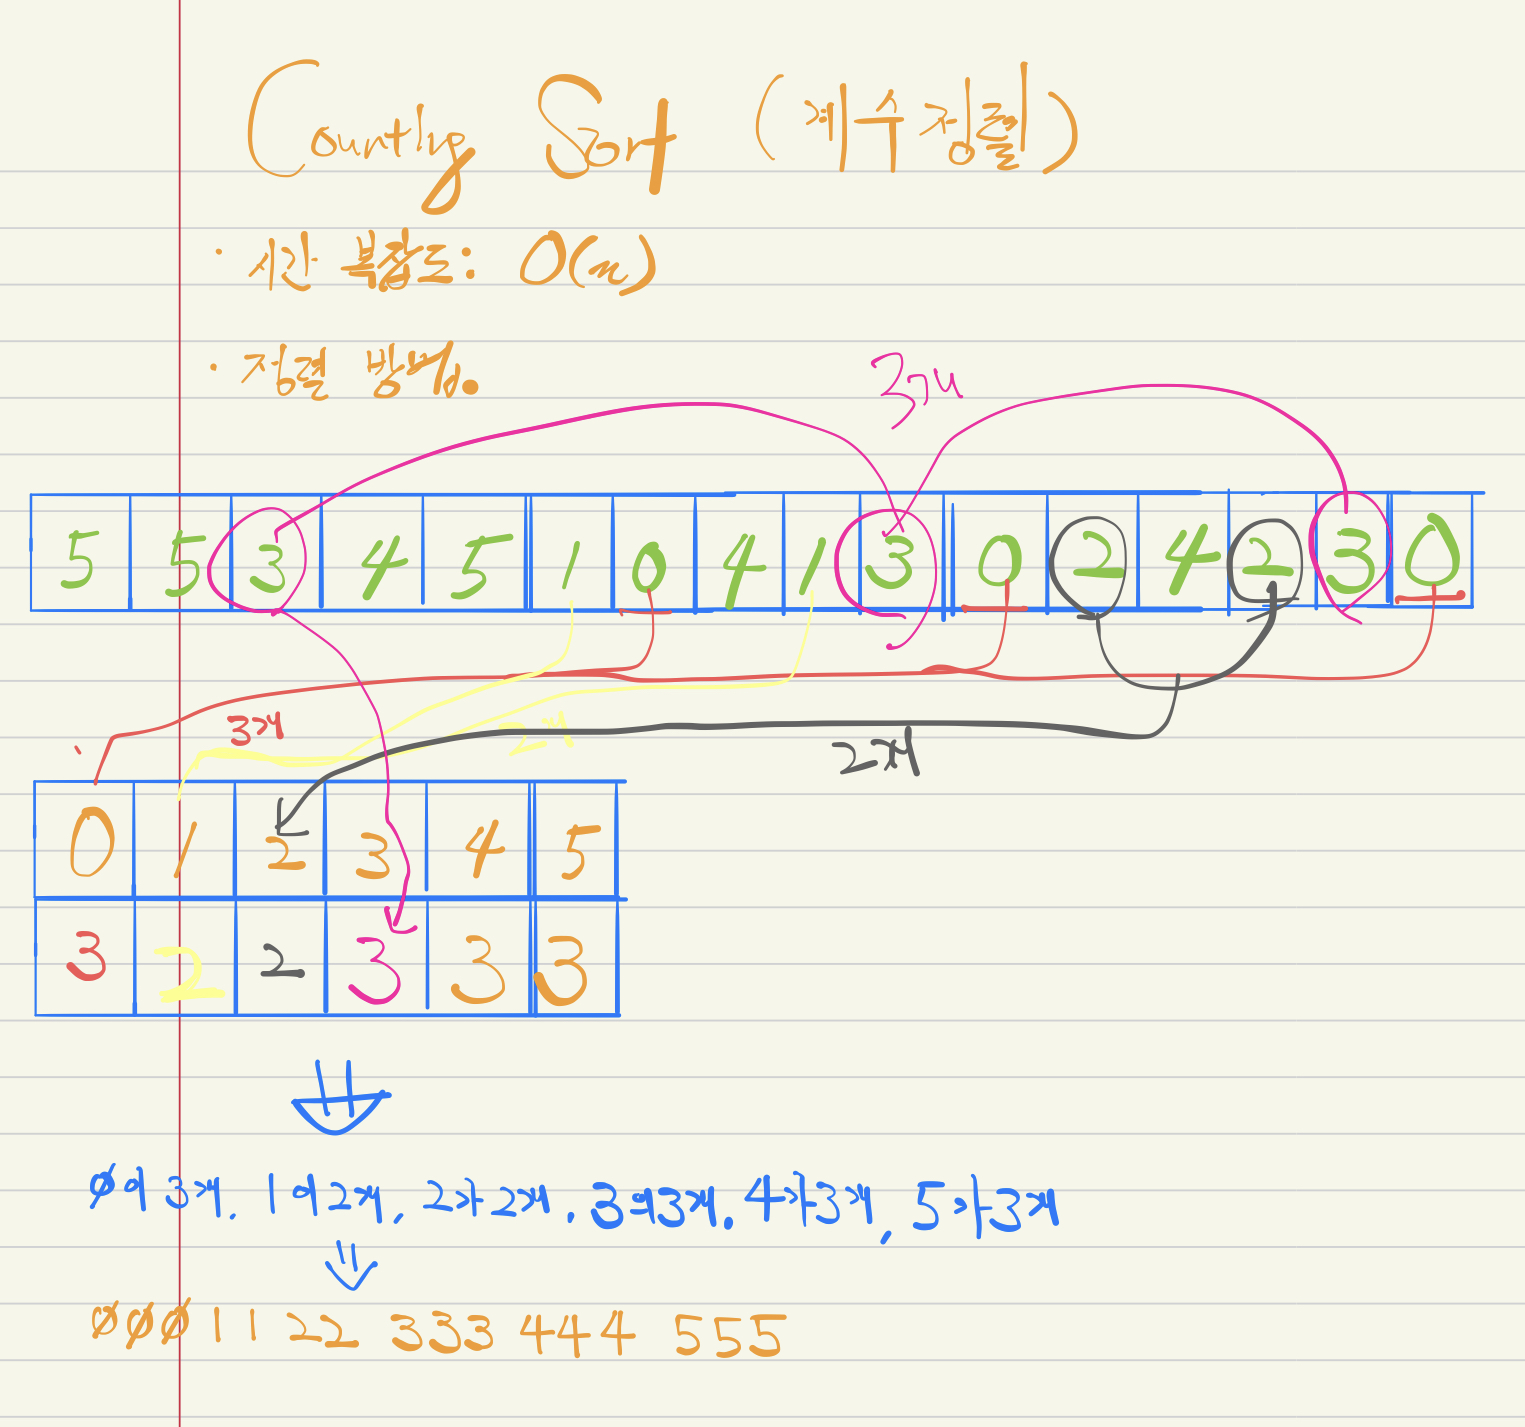 Counting Sort (계수정렬)
· 시간 복잡도: O(n)
· 정렬 방법.
3개
5 5 3 4 5 1 0 4 1 3 0 2 4 2 3 0
3개 2개 2개
0 1 2 3 4 5
3 2 2 3 3 3
0이 3개, 1이 2개, 2가 2개, 3이 3개, 4가 3개, 5가 3개
000 11 22 333 444 555